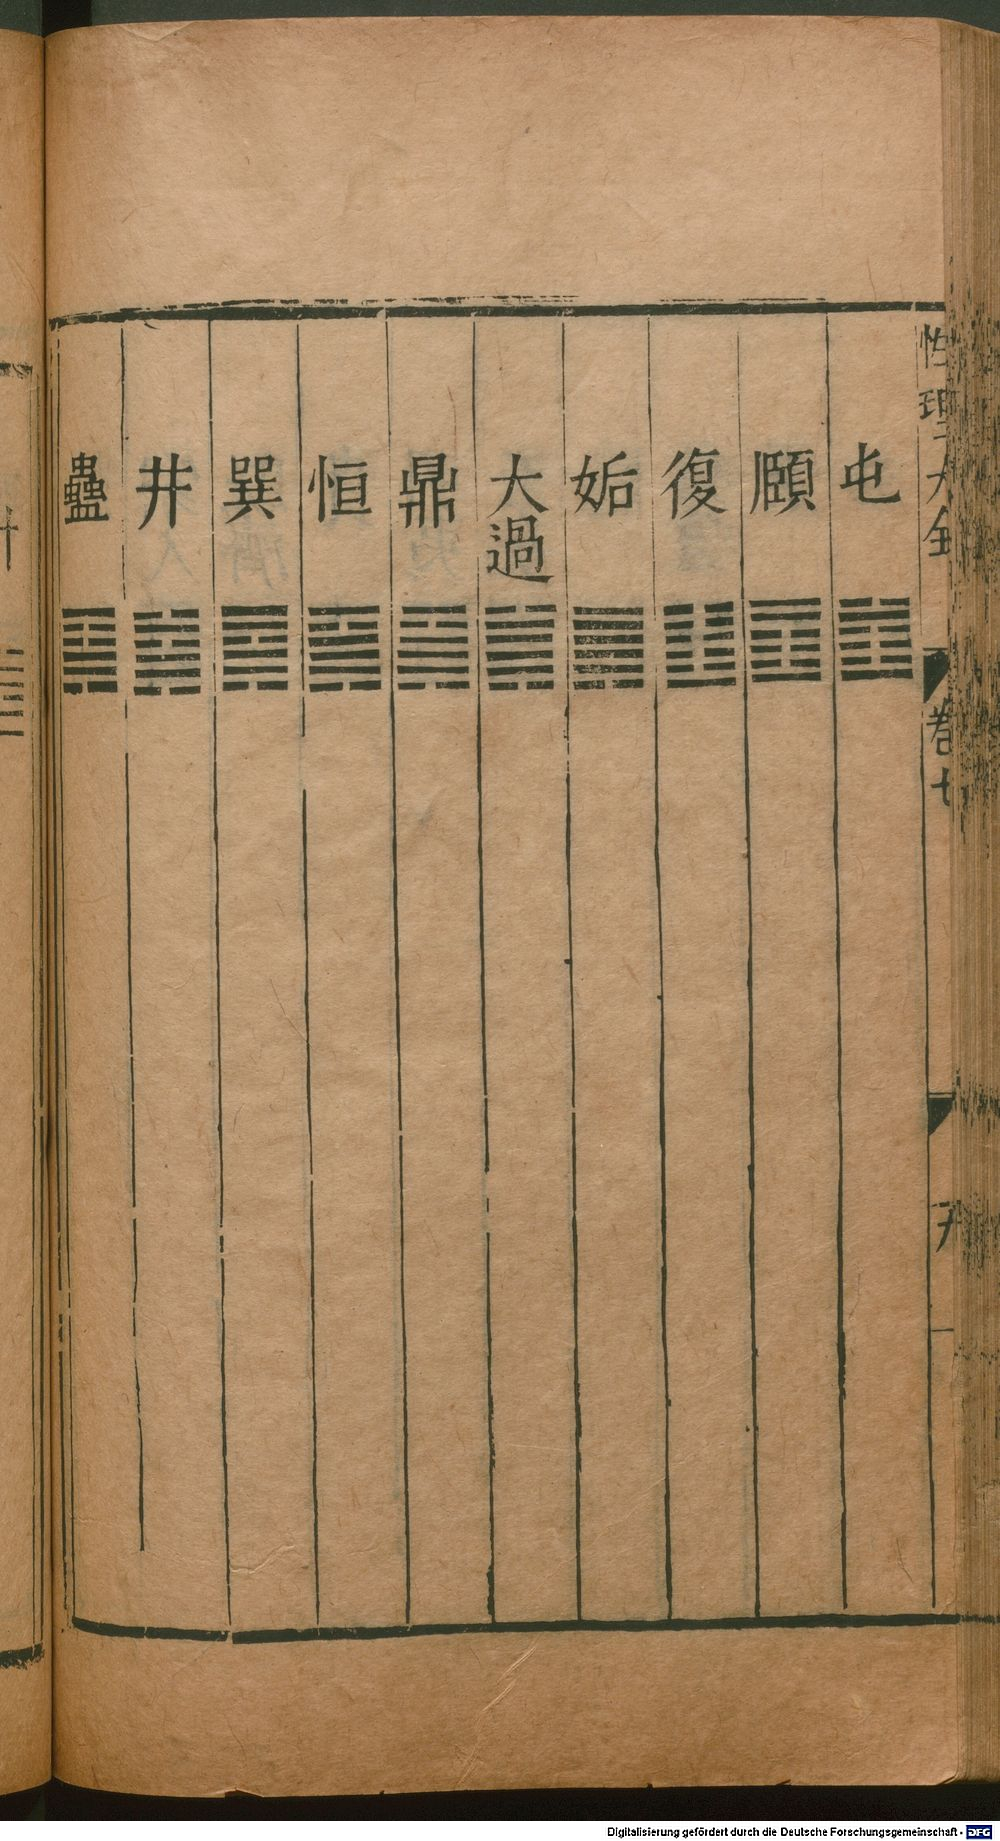 性理大全
卷七
屯
頤
復
姤
大過
鼎
恒
巽
井
蠱
Digitalisierung gefördert durch die Deutsche Forschungsgemeinschaft - DFG